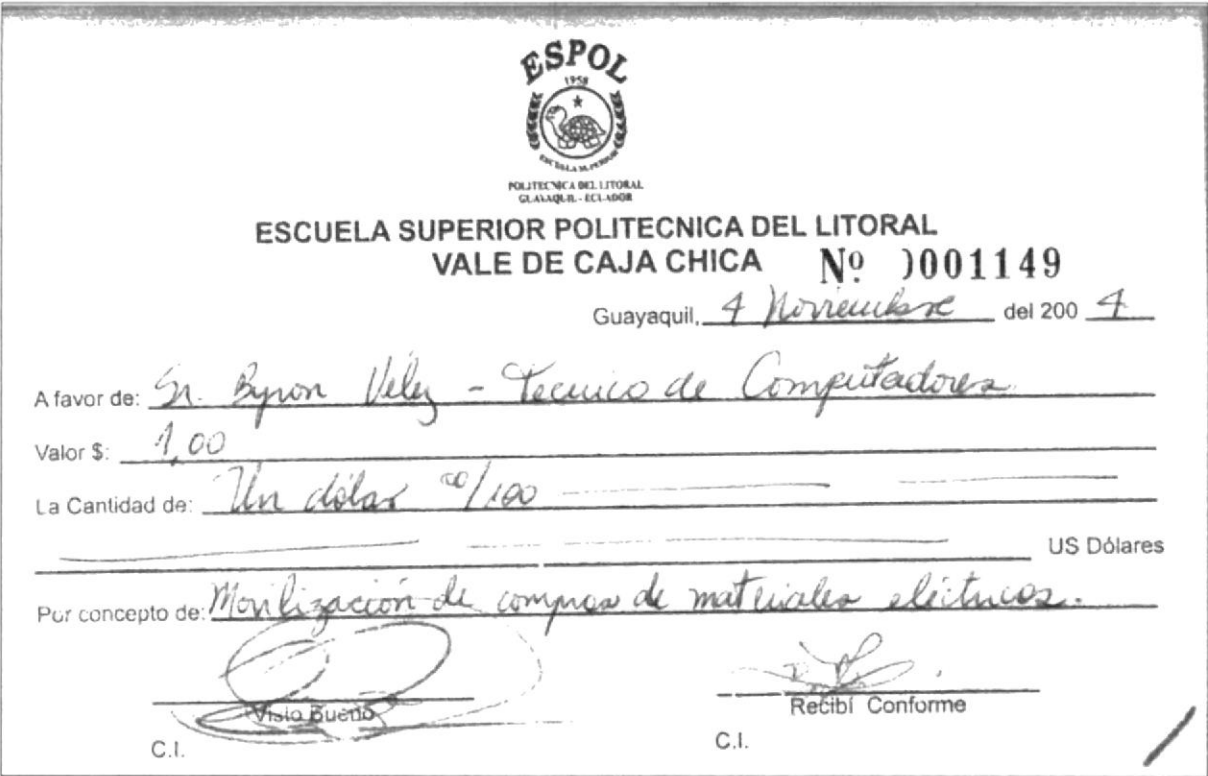 ESPOL
1958
ESCUELA SUPERIOR
POLITECNICA DEL LITORAL
GUAYAQUIL - ECUADOR
ESCUELA SUPERIOR POLITECNICA DEL LITORAL
VALE DE CAJA CHICA Nº 0001149
Guayaquil, 4 Noviembre del 200 4
A favor de: Sr. Byron Vélez - Tecnico de Computadores
Valor $: 1,00
La Cantidad de: Un dólar 00/100
US Dólares
Por concepto de: Movilización de compras de materiales eléctricos.
Visto Bueno Recibí Conforme
C.I. C.I.